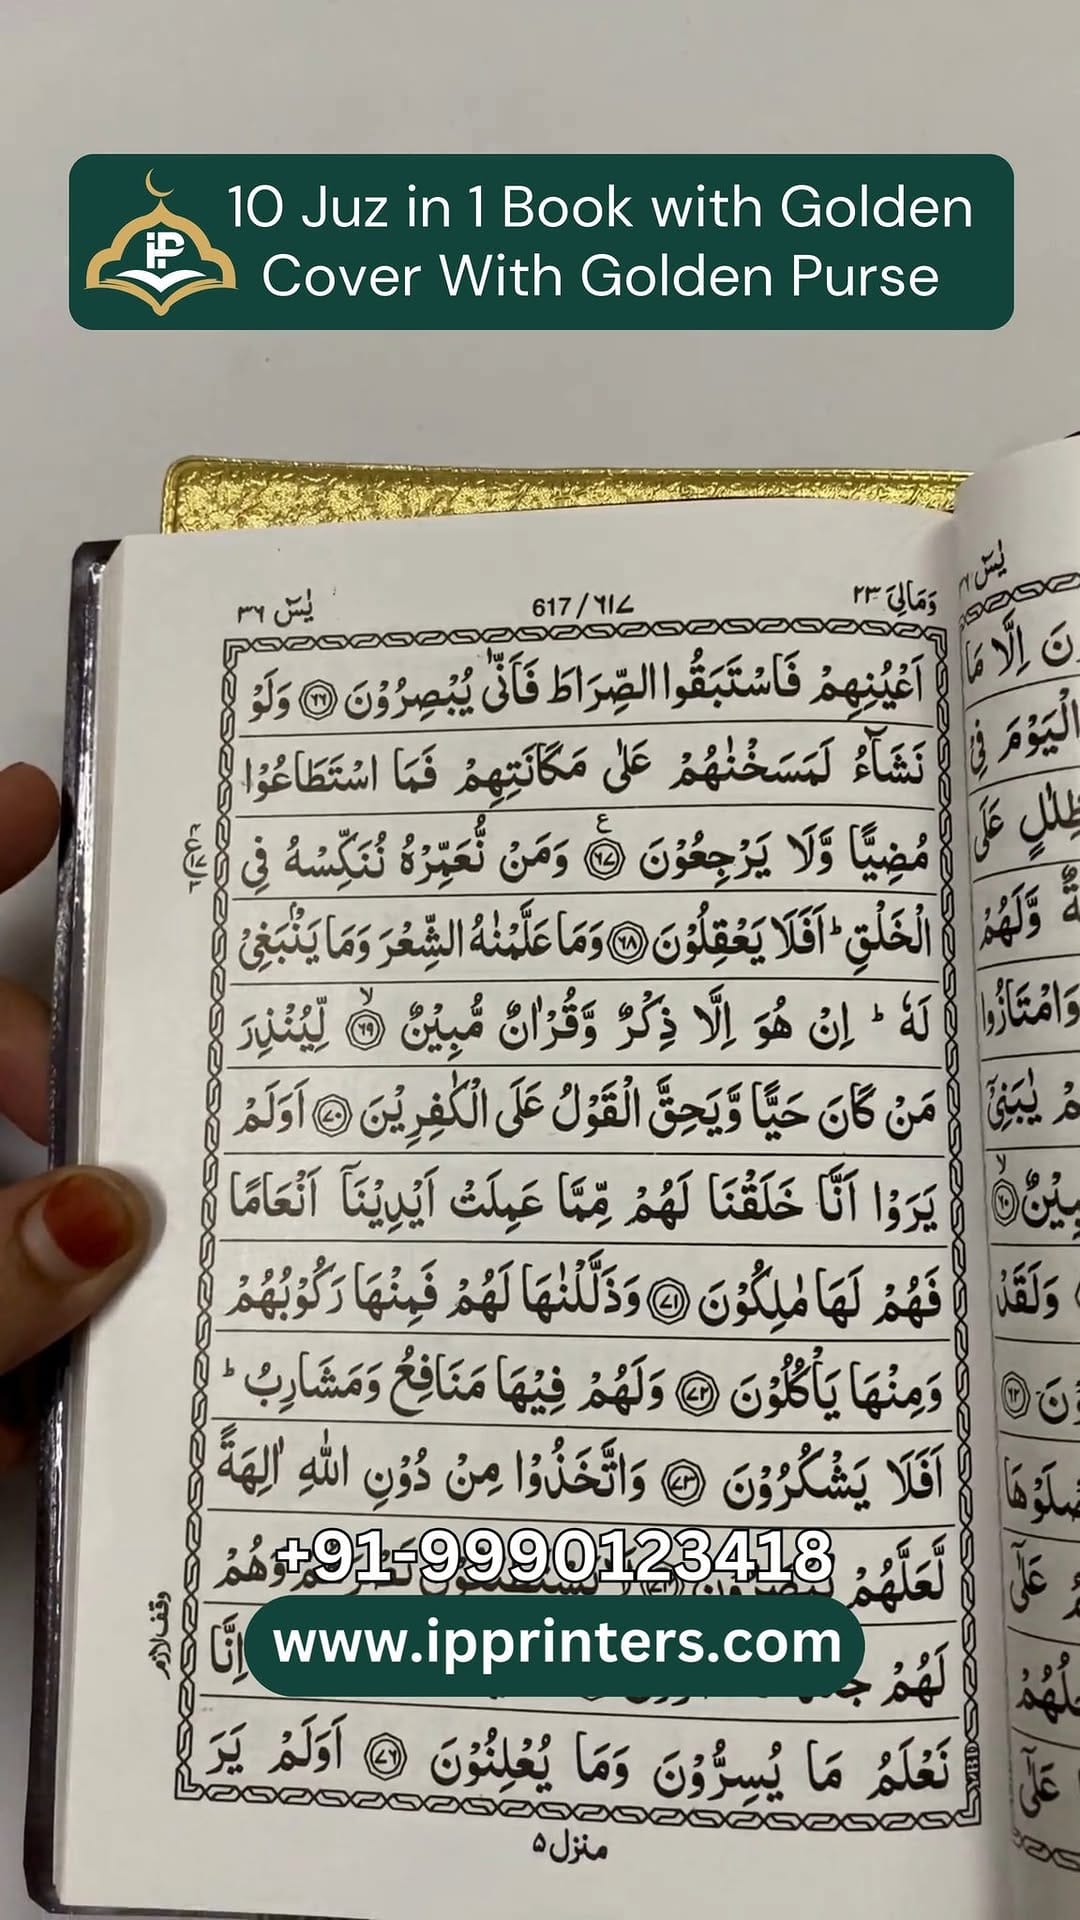 10 Juz in 1 Book with Golden
Cover With Golden Purse
iP
یٰسٓ ٣٦
617/٦١٧
وَمَالِیَ ٢٣
اَعْیُنِهِمْ فَاسْتَبَقُوا الصِّرَاطَ فَاَنّٰی یُبْصِرُوْنَ ﴿٦٦﴾ وَلَوْ
نَشَآءُ لَمَسَخْنٰهُمْ عَلٰی مَكَانَتِهِمْ فَمَا اسْتَطَاعُوْا
مُضِیًّا وَّلَا یَرْجِعُوْنَ ﴿٦٧﴾ وَمَنْ نُّعَمِّرْهُ نُنَكِّسْهُ فِی
الْخَلْقِ ؕ اَفَلَا یَعْقِلُوْنَ ﴿٦٨﴾ وَمَا عَلَّمْنٰهُ الشِّعْرَ وَمَا یَنْۢبَغِیْ
لَهٗ ؕ اِنْ هُوَ اِلَّا ذِكْرٌ وَّقُرْاٰنٌ مُّبِیْنٌ ﴿٦٩﴾ لِّیُنْذِرَ
مَنْ كَانَ حَیًّا وَّیَحِقَّ الْقَوْلُ عَلَی الْكٰفِرِیْنَ ﴿٧٠﴾ اَوَلَمْ
یَرَوْا اَنَّا خَلَقْنَا لَهُمْ مِّمَّا عَمِلَتْ اَیْدِیْنَاۤ اَنْعَامًا
فَهُمْ لَهَا مٰلِكُوْنَ ﴿٧١﴾ وَذَلَّلْنٰهَا لَهُمْ فَمِنْهَا رَكُوْبُهُمْ
وَمِنْهَا یَاْكُلُوْنَ ﴿٧٢﴾ وَلَهُمْ فِیْهَا مَنَافِعُ وَمَشَارِبُ ؕ
اَفَلَا یَشْكُرُوْنَ ﴿٧٣﴾ وَاتَّخَذُوْا مِنْ دُوْنِ اللّٰهِ اٰلِهَةً
لَّعَلَّهُمْ وَهُمْ
+91-9990123418
لَهُمْ اِنَّا
www.ipprinters.com
نَعْلَمُ مَا یُسِرُّوْنَ وَمَا یُعْلِنُوْنَ ﴿٧٦﴾ اَوَلَمْ یَرَ
وقف لازم
منزل ٥
یٰسٓ
نَ اِلَّا مَا
الْیَوْمَ فِیْ
ظِلٰلٍ عَلَی
وَّلَهُمْ
وَامْتَازُوا
یٰبَنِیْۤ
وَلَقَدْ